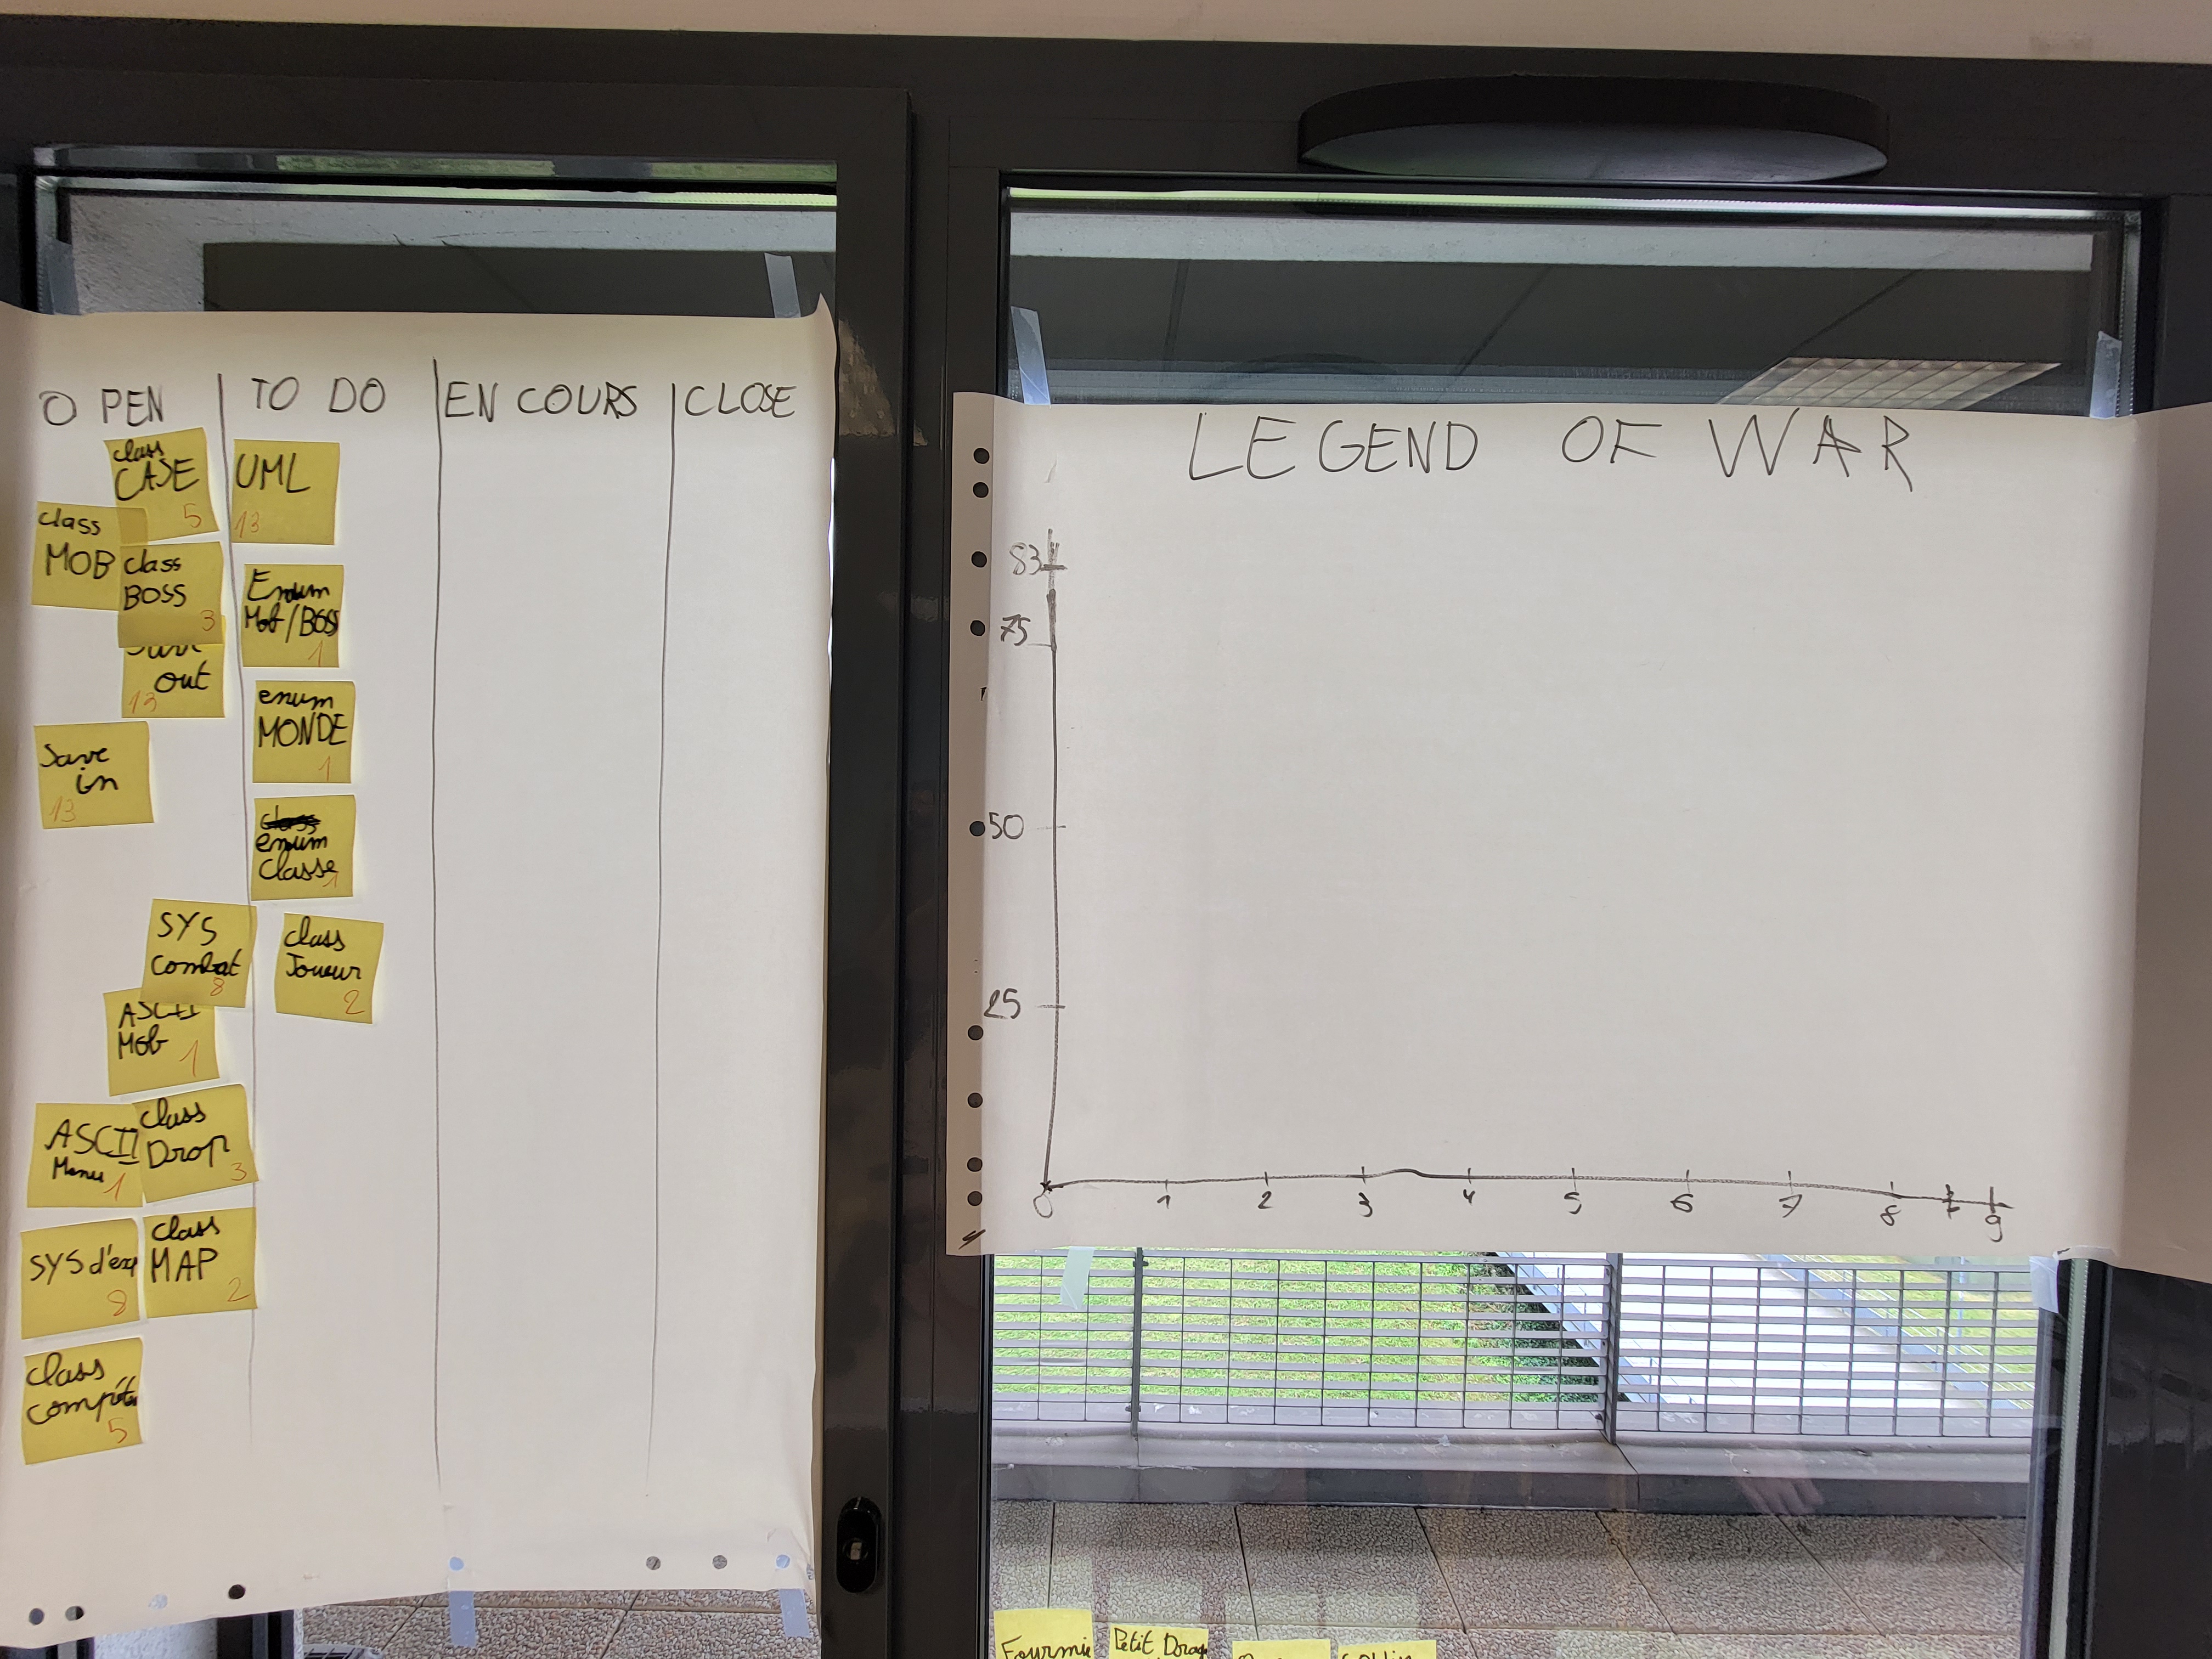 O PEN
TO DO
EN COURS
CLOSE
class
CASE
5
class
MOB
class
BOSS
3
out
13
Save
in
13
SYS
Combat
8
ASCII
Mob
1
ASCII
Menu
1
class
Drop
3
SYS d'exp
8
class
MAP
2
class
5
UML
13
Enum
Mob/BOSS
1
enum
MONDE
1
class
enum
Classe
1
class
Joueur
2
LEGEND OF WAR
83
75
50
25
0 1 2 3 4 5 6 7 8 9
Fourmie
Petit Drag